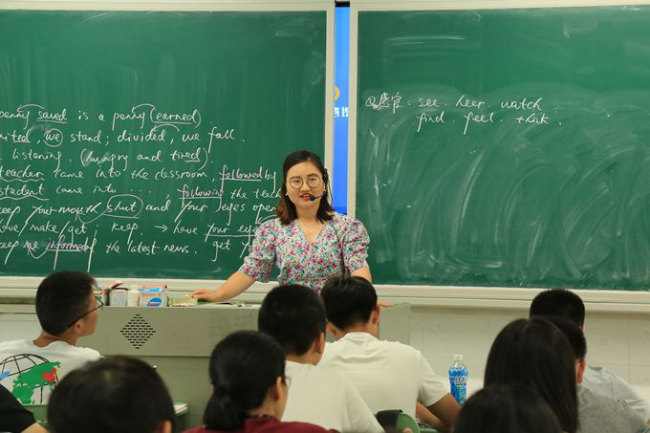 penny saved is a penny (earned)
United, we stand; divided, we fall.
listening, (hungry and tired)
teacher came into the classroom, followed by
student came into ... following the teac
keep your mouth shut and your eyes open
have make get keep → have your
keep me informed of the latest news. get
感官. see hear watch
find feel think.